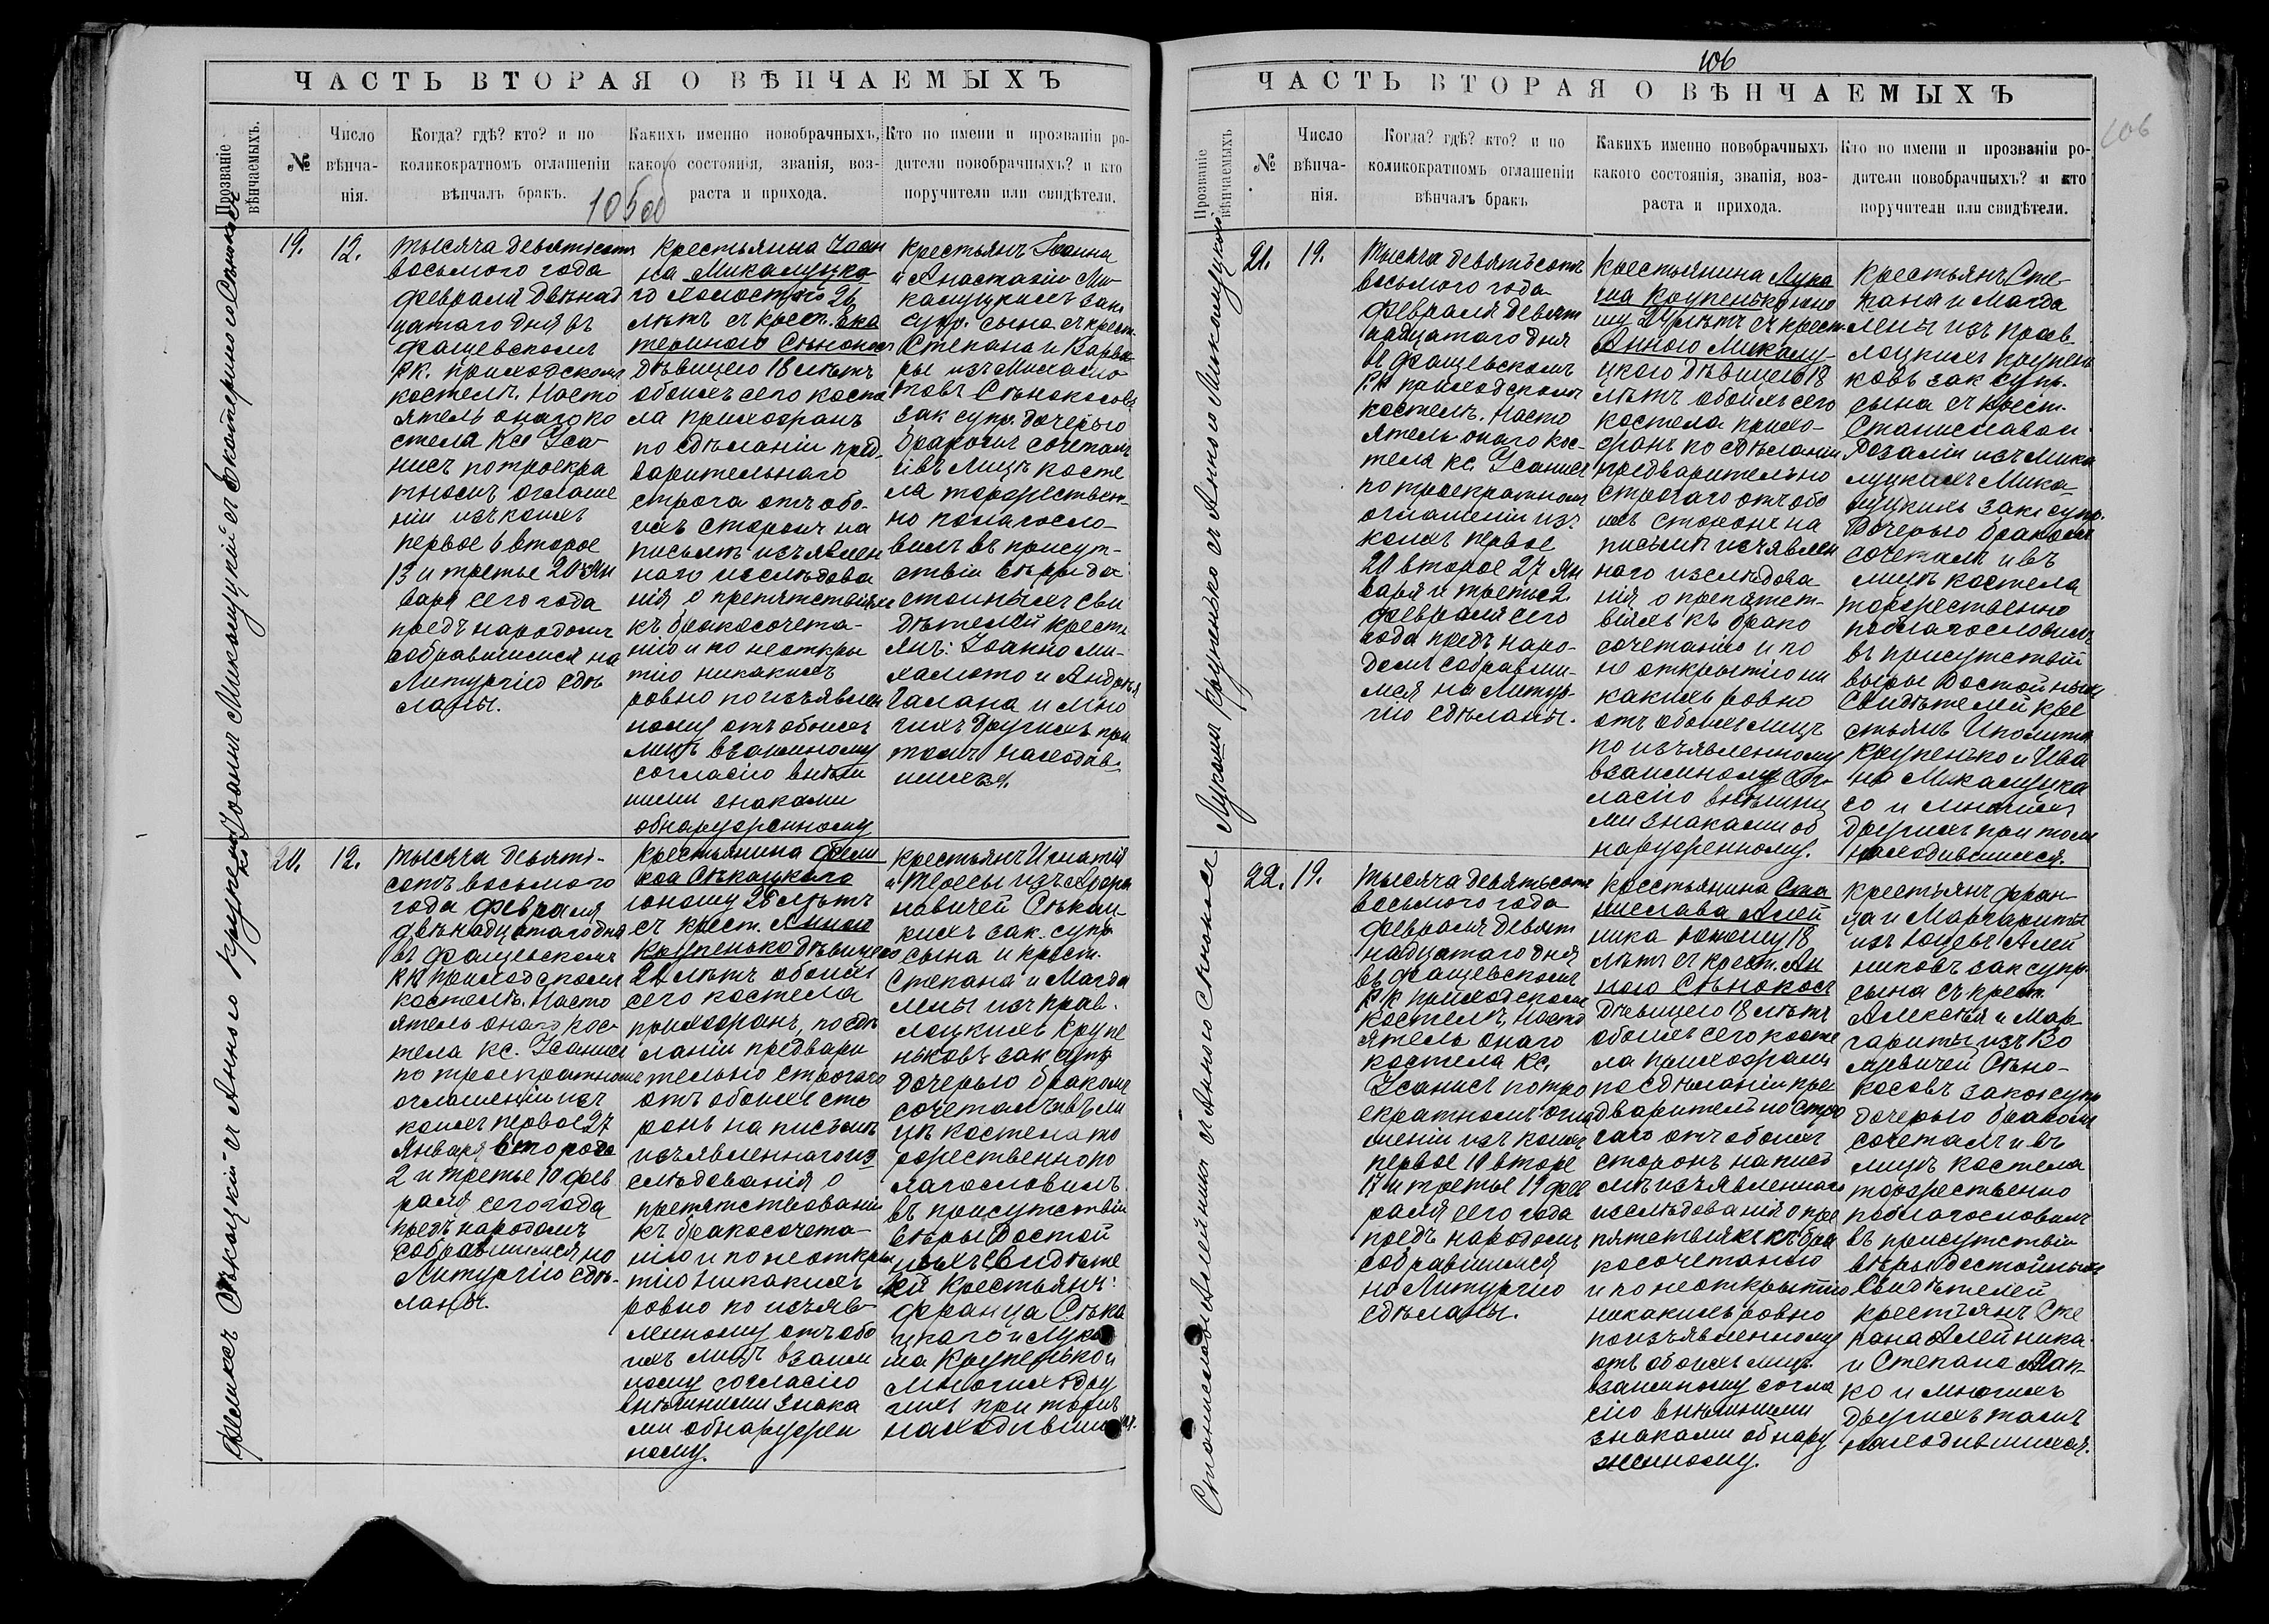 ЧАСТЬ ВТОРАЯ О ВѢНЧАЕМЫХЪ
Прозваніе вѣнчаемыхъ.
№
Число
вѣнча-
нія.
Когда? гдѣ? кто? и по
коликократномъ оглашеніи
вѣнчалъ бракъ.
Какихъ именно новобрачныхъ,
какого состоянія, званія, воз-
раста и прихода.
Кто по имени и прозваніи ро-
дители новобрачныхъ? и кто
поручители или свидѣтели.
105об
19.
12.
Тысяча девятьсотъ
восьмого года
февраля двѣнад
цатаго дня въ
Фащевскомъ
Р.К. приходскомъ
костелѣ. Насто
ятель онаго ко
стела Кс.
по троекра
тномъ оглаше
ніи изъ коихъ
первое 6 второе
13 и третье 20 Ян
варя сего года
предъ народомъ
собравшимся на
Литургію сдѣ
ланы.
Крестьянина Іоан
на Микалуцка
го холостого 26
лѣтъ съ крест. Ека
териною Сѣнокосъ
дѣвицею 18 лѣтъ
обоихъ сего косте
ла прихожанъ
по сдѣланіи пред
варительнаго
строга отъ обо-
ихъ сторонъ на
письмѣ изъявлен
наго изслѣдова
нія о препятствіяхъ
къ бракосочета-
нію и по неоткры
тію никакихъ
ровно по изъявлен
ному отъ обоихъ
лицъ взаимному
согласію внѣш
ними знаками
обнаруженному
Крестьянъ Іоанна
и Анастазіи Ми
калуцкихъ зак.
супр. сына съ крест.
Степана и Варва
ры изъ
Сѣнокосовъ
зак супр. дочерью
бракомъ сочеталъ
и въ лицѣ косте
ла торжествен-
но поблагосло-
вилъ въ присут-
ствіи вѣры до
стойныхъ сви
дѣтелей кресть
янъ: Іоанна Ми-
халюто и Андрея
Галана и мно
гихъ другихъ при
томъ находив-
шихся.
Іоаннъ Микалуцкій съ Екатериною Сѣнокосъ
20.
12.
Тысяча девять-
сотъ восьмого
года февраля
двѣнадцатаго дня
въ Фащевскомъ
Р К приходскомъ
костелѣ. Насто
ятель онаго кос-
тела кс.
по троекратномъ
оглашеніи изъ
коихъ первое 27
Января второе
2 и третье 10 фев
раля сего года
предъ народомъ
собравшимся на
Литургію сдѣ-
ланы.
Крестьянина Фели
кса Сѣкацкаго
юношу 26 лѣтъ
съ крест. Анною
Крупенько дѣвицею
21 лѣтъ обоихъ
сего костела
прихожанъ, по сдѣ
ланіи предвари
тельно строгаго
отъ обоихъ сто
ронъ на письмѣ
изъявленнаго из
слѣдованія о
препятствованіи
къ бракосочета-
нію и по неоткры
тію никакихъ
ровно по изъяв-
ленному отъ обо
ихъ лицъ взаим
ному согласію
внѣшними знака
ми обнаружен
ному.
Крестьянъ Игнатія
и Тересы изъ
Сѣкац-
кихъ зак. супр
сына и крест.
Степана и Магда
лены изъ Прав-
лоцкихъ Крупе
ньковъ зак супр
дочерью бракомъ
сочеталъ и въ ли
цѣ костела то
ржественно по
благословилъ
въ присутствіи
вѣры достой
ныхъ свидѣте
лей крестьянъ:
Франца Сѣка
цкаго и Лука
ша Крупенько и
многихъ дру
гихъ при томъ
находившихся.
Феликсъ Сѣкацкій съ Анною Крупенько
106
106
ЧАСТЬ ВТОРАЯ О ВѢНЧАЕМЫХЪ
Прозваніе вѣнчаемыхъ
№
Число
вѣнча-
нія.
Когда? гдѣ? кто? и по
коликократномъ оглашеніи
вѣнчалъ бракъ
Какихъ именно новобрачныхъ
какого состоянія, званія, воз-
раста и прихода.
Кто по имени и прозваніи ро-
дители новобрачныхъ? и кто
поручители или свидѣтели.
21.
19.
Тысяча девятьсотъ
восьмого года
февраля девят
надцатаго дня
въ Фащевскомъ
Р.К приходскомъ
костелѣ. Насто
ятель онаго кос-
тела кс.
по троекратномъ
оглашеніи изъ
коихъ первое
20 второе 27 Ян
варя и третье 2
февраля сего
года предъ наро-
домъ собравши-
мся на Литур-
гію сдѣланы.
Крестьянина Лука
ша Крупенько юно
шу 24 лѣтъ съ крест.
Анною Микалу-
цкою дѣвицею 18
лѣтъ обоихъ сего
костела прихо-
жанъ по сдѣланіи
предварительно
строгаго отъ обо
ихъ сторонъ на
письмѣ изъявлен
наго изслѣдова
нія о препятст-
віяхъ къ брако
сочетанію и по
не открытію ни
какихъ ровно
отъ обоихъ лицъ
по изъявленному
взаимному сог-
ласію внѣшни
ми знаками об
наруженному.
Крестьянъ Сте-
пана и Магда
лены изъ Прав-
лоцкихъ Крупень
ковъ зак супр.
сына съ крест.
Станислава и
Розаліи изъ Мика
луцкихъ Мика-
луцкихъ зак. супр.
дочерью бракомъ
сочеталъ и въ
лицѣ костела
торжественно
поблагословилъ
въ присутствіи
вѣры достойныхъ
свидѣтелей кре
стьянъ Ипполита
Крупенько и Ива
на Микалуцка
го и многихъ
другихъ при томъ
находившихся.
Лукашъ Крупенько съ Анною Микалуцкой
22.
19.
Тысяча девятьсотъ
восьмого года
февраля девят
надцатаго дня
въ Фащевскомъ
Р К приходскомъ
костелѣ, Насто
ятель онаго
костела Кс.
по тро
екратномъ огла
шеніи изъ коихъ
первое 10 второе
17 и третье 19 фев
раля сего года
предъ народомъ
собравшимся
на Литургію
сдѣланы.
Крестьянина Ста
нислава Алей
ника юношу 18
лѣтъ съ крест. Ан
ною Сѣнокосъ
дѣвицею 18 лѣтъ
обоихъ сего косте
ла прихожанъ
по сдѣланіи пре
дварительно стро
гаго отъ обоихъ
сторонъ на пись
мѣ изъявленнаго
изслѣдованія о пре
пятствіяхъ къ бра
косочетанію
и по неоткрытію
никакихъ ровно
по изъявленному
отъ обоихъ лицъ
взаимному согла
сію внѣшними
знаками обнару
женному.
Крестьянъ Фран-
ца и Маргариты
изъ Алей
никовъ зак супр
сына съ крест.
Алексѣя и Мар
гариты изъ
Сѣно-
косовъ закон супр
дочерью бракомъ
сочеталъ и въ
лицѣ костела
торжественно
поблагословилъ
въ присутствіи
вѣры достойныхъ
свидѣтелей
крестьянъ Сте
пана Алейника
и Степана
ко и многихъ
другихъ тамъ
находившихся.
Станиславъ Алейникъ съ Анною Сѣнокосъ